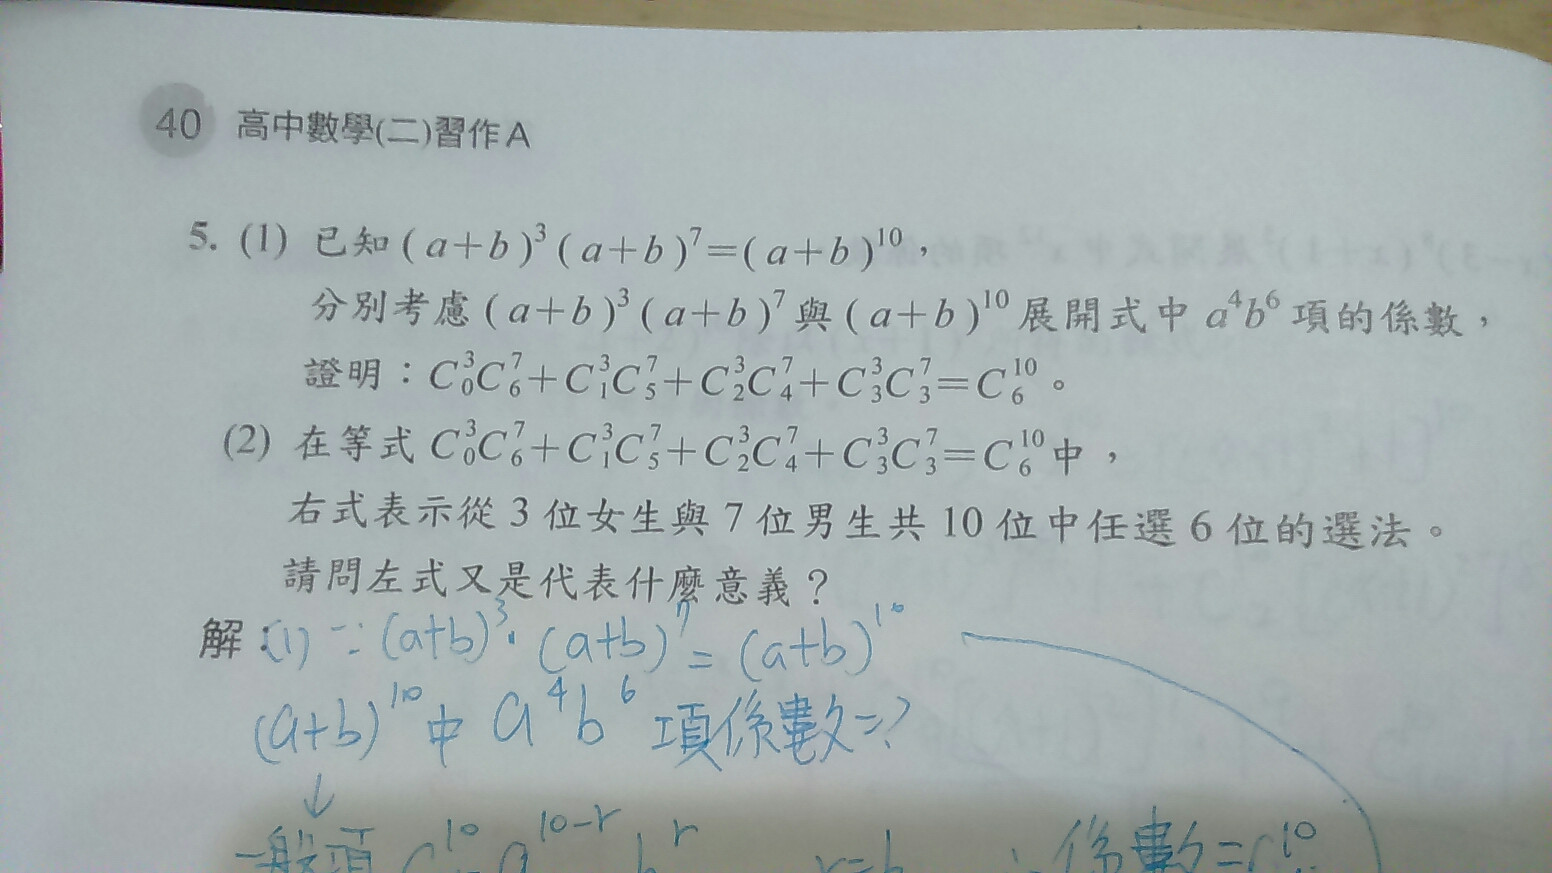 40 高中數學(二)習作A
5. (1) 已知(a+b)³(a+b)⁷=(a+b)¹⁰，
分別考慮(a+b)³(a+b)⁷與(a+b)¹⁰展開式中a⁴b⁶項的係數，
證明：C³₀C⁷₆+C³₁C⁷₅+C³₂C⁷₄+C³₃C⁷₃=C¹⁰₆。
(2) 在等式C³₀C⁷₆+C³₁C⁷₅+C³₂C⁷₄+C³₃C⁷₃=C¹⁰₆中，
右式表示從3位女生與7位男生共10位中任選6位的選法。
請問左式又是代表什麼意義？
解：(1) ∵ (a+b)³·(a+b)⁷=(a+b)¹⁰
(a+b)¹⁰中 a⁴b⁶ 項係數=?
↓
一般項 C¹⁰ a¹⁰⁻ʳ bʳ 係數=C¹⁰